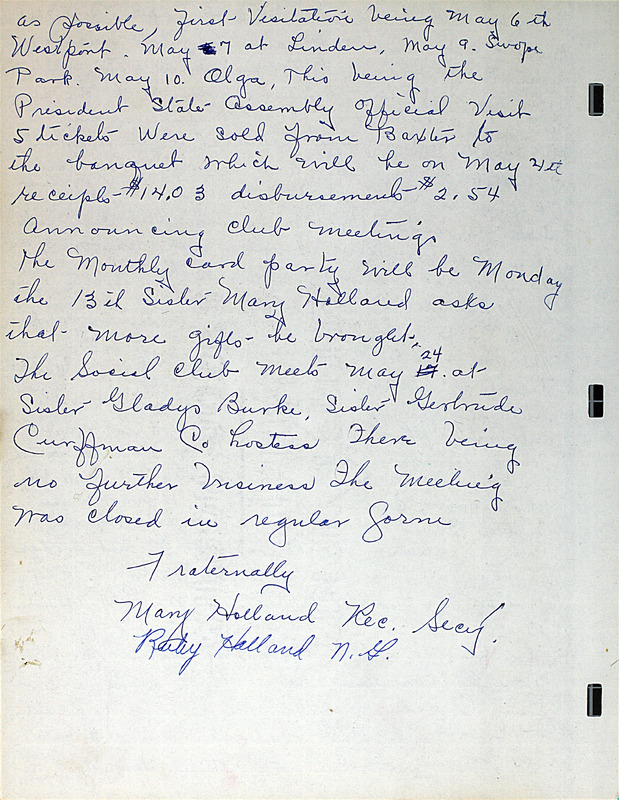 as possible, first Visitation being May 6th
Westport. May 7 at Linden, May 9. Swope
Park. May 10. Olga, This being the
President State Assembly Official Visit
5 tickets were sold from Baxter to
the banquet which will be on May 4th
receipts-$14.03 disbursements-$2.54
Announcing club meetings
The Monthly card party will be Monday
the 13th Sister Mary Holland asks
that more gifts be brought.
The Social club meets May 24 at
Sister Gladys Burke, Sister Gertrude
Co hostess There being
no further business The meeting
was closed in regular form
Fraternally
Mary Holland Rec. Secy.
Holland N.G.